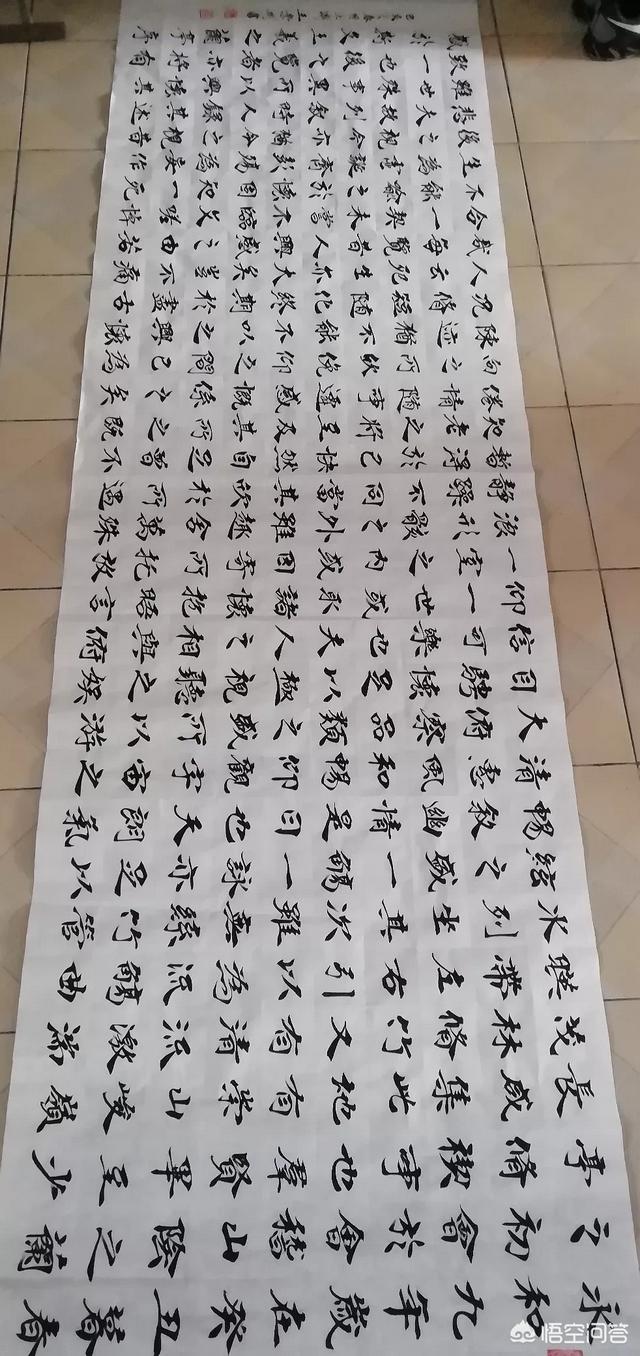 永和九年歲在癸丑暮春
之初會於會稽山陰之蘭
亭脩禊事也羣賢畢至少
長咸集此地有崇山峻嶺
茂林脩竹又有清流激湍
映帶左右引以為流觴曲
水列坐其次雖無絲竹管
絃之盛一觴一詠亦足以
暢敘幽情是日也天朗氣
清惠風和暢仰觀宇宙之
大俯察品類之盛所以游
目騁懷足以極視聽之娛
信可樂也夫人之相與俯
仰一世或取諸懷抱晤言
一室之內或因寄所托放
浪形骸之外雖趣舍萬殊
靜躁不同當其欣於所遇
暫得於己快然自足不
知老之將至及其所之既
倦情隨事遷感慨係之矣
向之所欣俛仰之間已為
陳迹猶不能不以之興懷
況脩短隨化終期於盡古
人云死生亦大矣豈不痛
哉每覽昔人興感之由若
合一契未嘗不臨文嗟悼
不能喻之於懷固知一死
生為虛誕齊彭殤為妄作
後之視今亦猶今之視昔
悲夫故列敘時人錄其述
雖世殊事異所以興懷其
致一也後之覽者亦將有
感於斯文王羲之蘭亭序
悟空问答